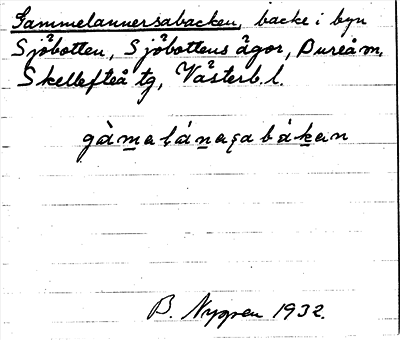 Gammelannersabacken, backe i byn
Sjöbotten, Sjöbottens ägor, Bureå sn,
Skellefteå tg, Västerb. l.
gàmalánașabàkan
B. Nygren 1932.